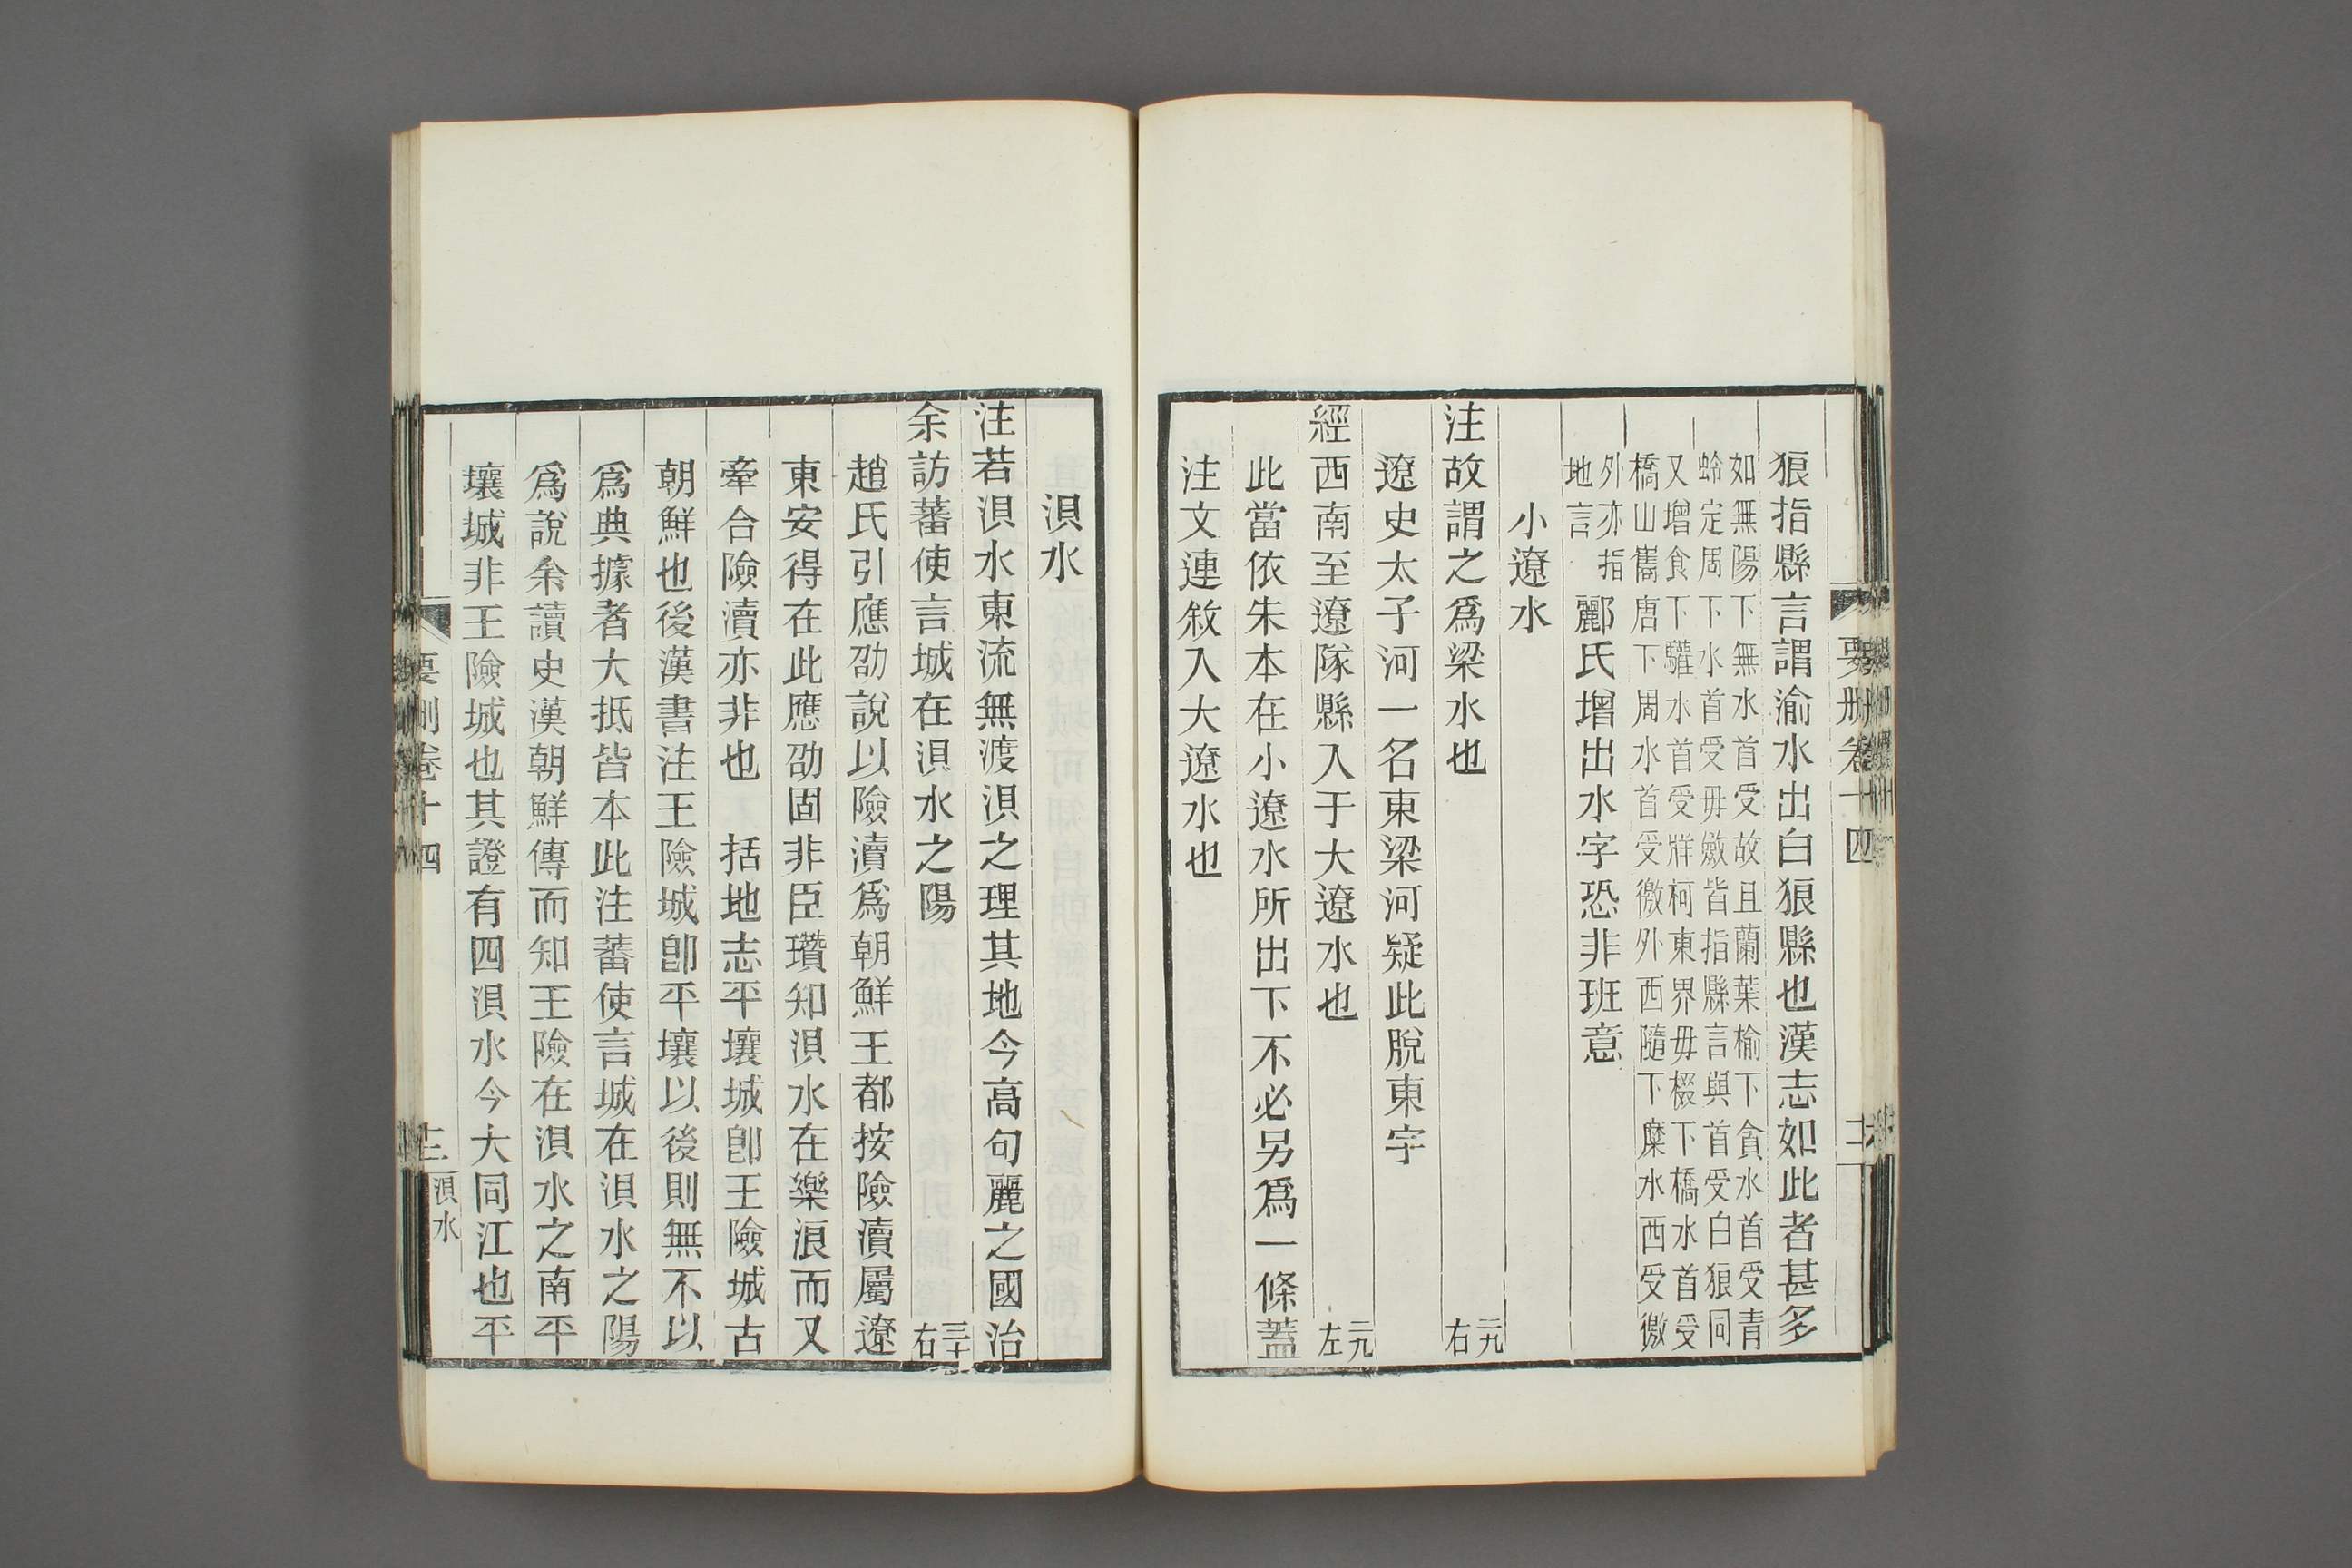 要刪卷十四
狼指縣言謂渝水出白狼縣也漢志如此者甚多
如無陽下無水首受故且蘭葉榆下貪水首受青
蛉定周下水首受毋斂皆指縣言與首受白狼同
又增食下驩水首受牂柯東界毋棳下橋水首受
橋山巂唐下周水首受徼外西隨下糜水西受徼
外亦指
地言
酈氏增出水字恐非班意
小遼水
注故謂之爲梁水也
二九
右
遼史太子河一名東梁河疑此脫東字
經西南至遼隊縣入于大遼水也
二九
左
此當依朱本在小遼水所出下不必另爲一條蓋
注文連敘入大遼水也
浿水
注若浿水東流無渡浿之理其地今高句麗之國治
余訪蕃使言城在浿水之陽
三十
右
趙氏引應劭說以險瀆爲朝鮮王都按險瀆屬遼
東安得在此應劭固非臣瓚知浿水在樂浪而又
牽合險瀆亦非也 括地志平壤城卽王險城古
朝鮮也後漢書注王險城卽平壤以後則無不以
爲典據者大抵皆本此注蕃使言城在浿水之陽
爲說余讀史漢朝鮮傳而知王險在浿水之南平
壤城非王險城也其證有四浿水今大同江也平
要刪卷十四
浿水